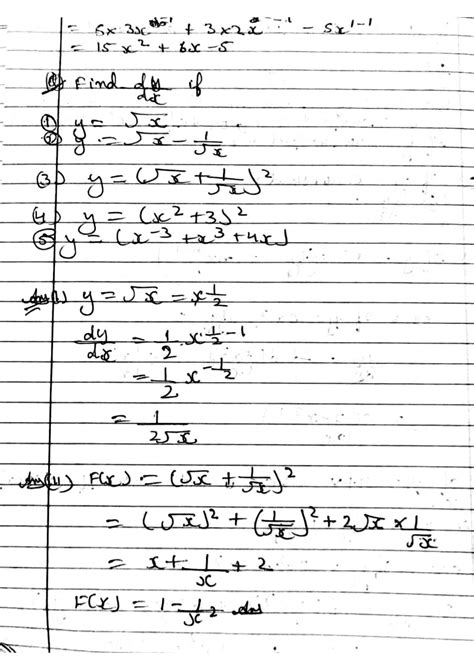 = 5x 3x³⁻¹ + 3x2x²⁻¹ - 5x¹⁻¹
= 15x² + 6x - 5
Q) Find dy/dx if
① y = √x
② y = √x - 1/√x
(3) y = (√x + 1/√x)²
(4) y = (x² + 3)²
⑤ y = (x⁻³ + x³ + 4x)
Ans(1) y = √x = x^1/2
dy/dx = 1/2 x^1/2-1
= 1/2 x^-1/2
= 1/2√x
Ans(11) F(x) = (√x + 1/√x)²
= (√x)² + (1/√x)² + 2√x × 1/√x
= x + 1/x + 2
F(x) = 1 - 1/x² Ans